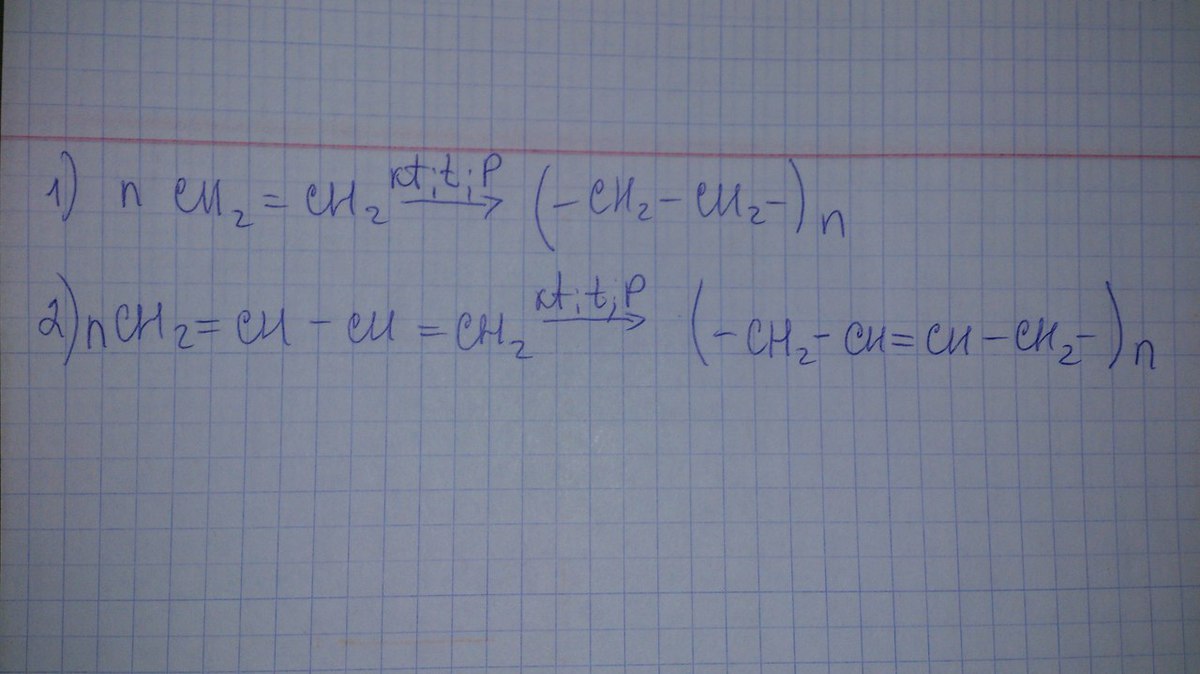 1) n CH₂ = CH₂ $\xrightarrow{kt; t; P}$ (-CH₂-CH₂-)ₙ
2) nCH₂ = CH - CH = CH₂ $\xrightarrow{kt; t; P}$ (-CH₂-CH=CH-CH₂-)ₙ